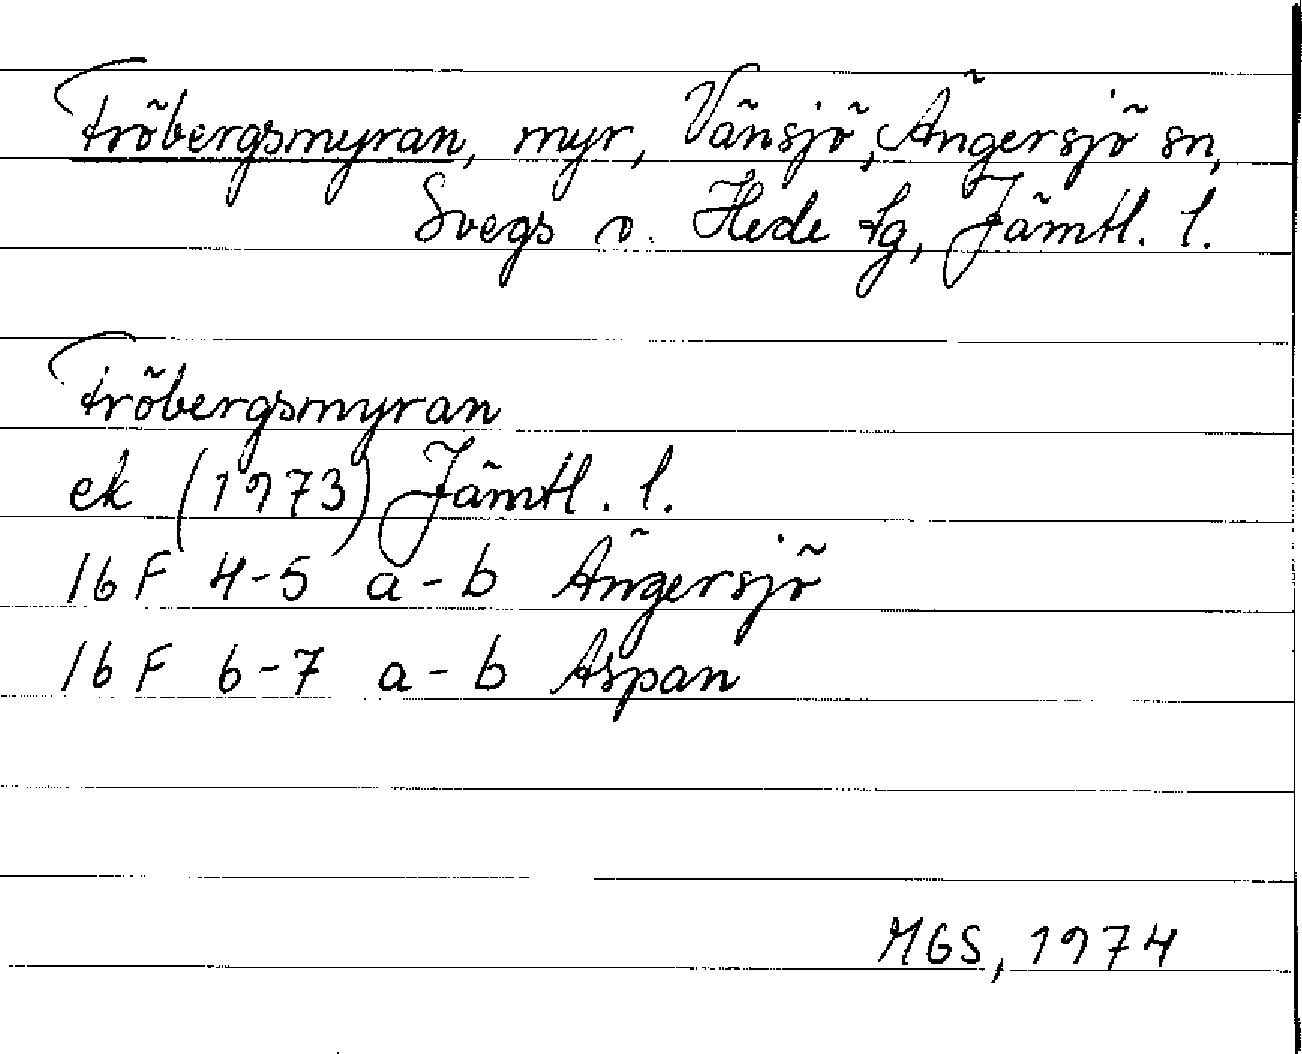 Fröbergsmyran, myr, Vänsjö, Ängersjö sn,
Svegs o. Hede tg, Jämtl. l.
Fröbergsmyran
ek (1973) Jämtl. l.
16 F 4-5 a-b Ängersjö
16 F 6-7 a-b Aspan
MGS, 1974